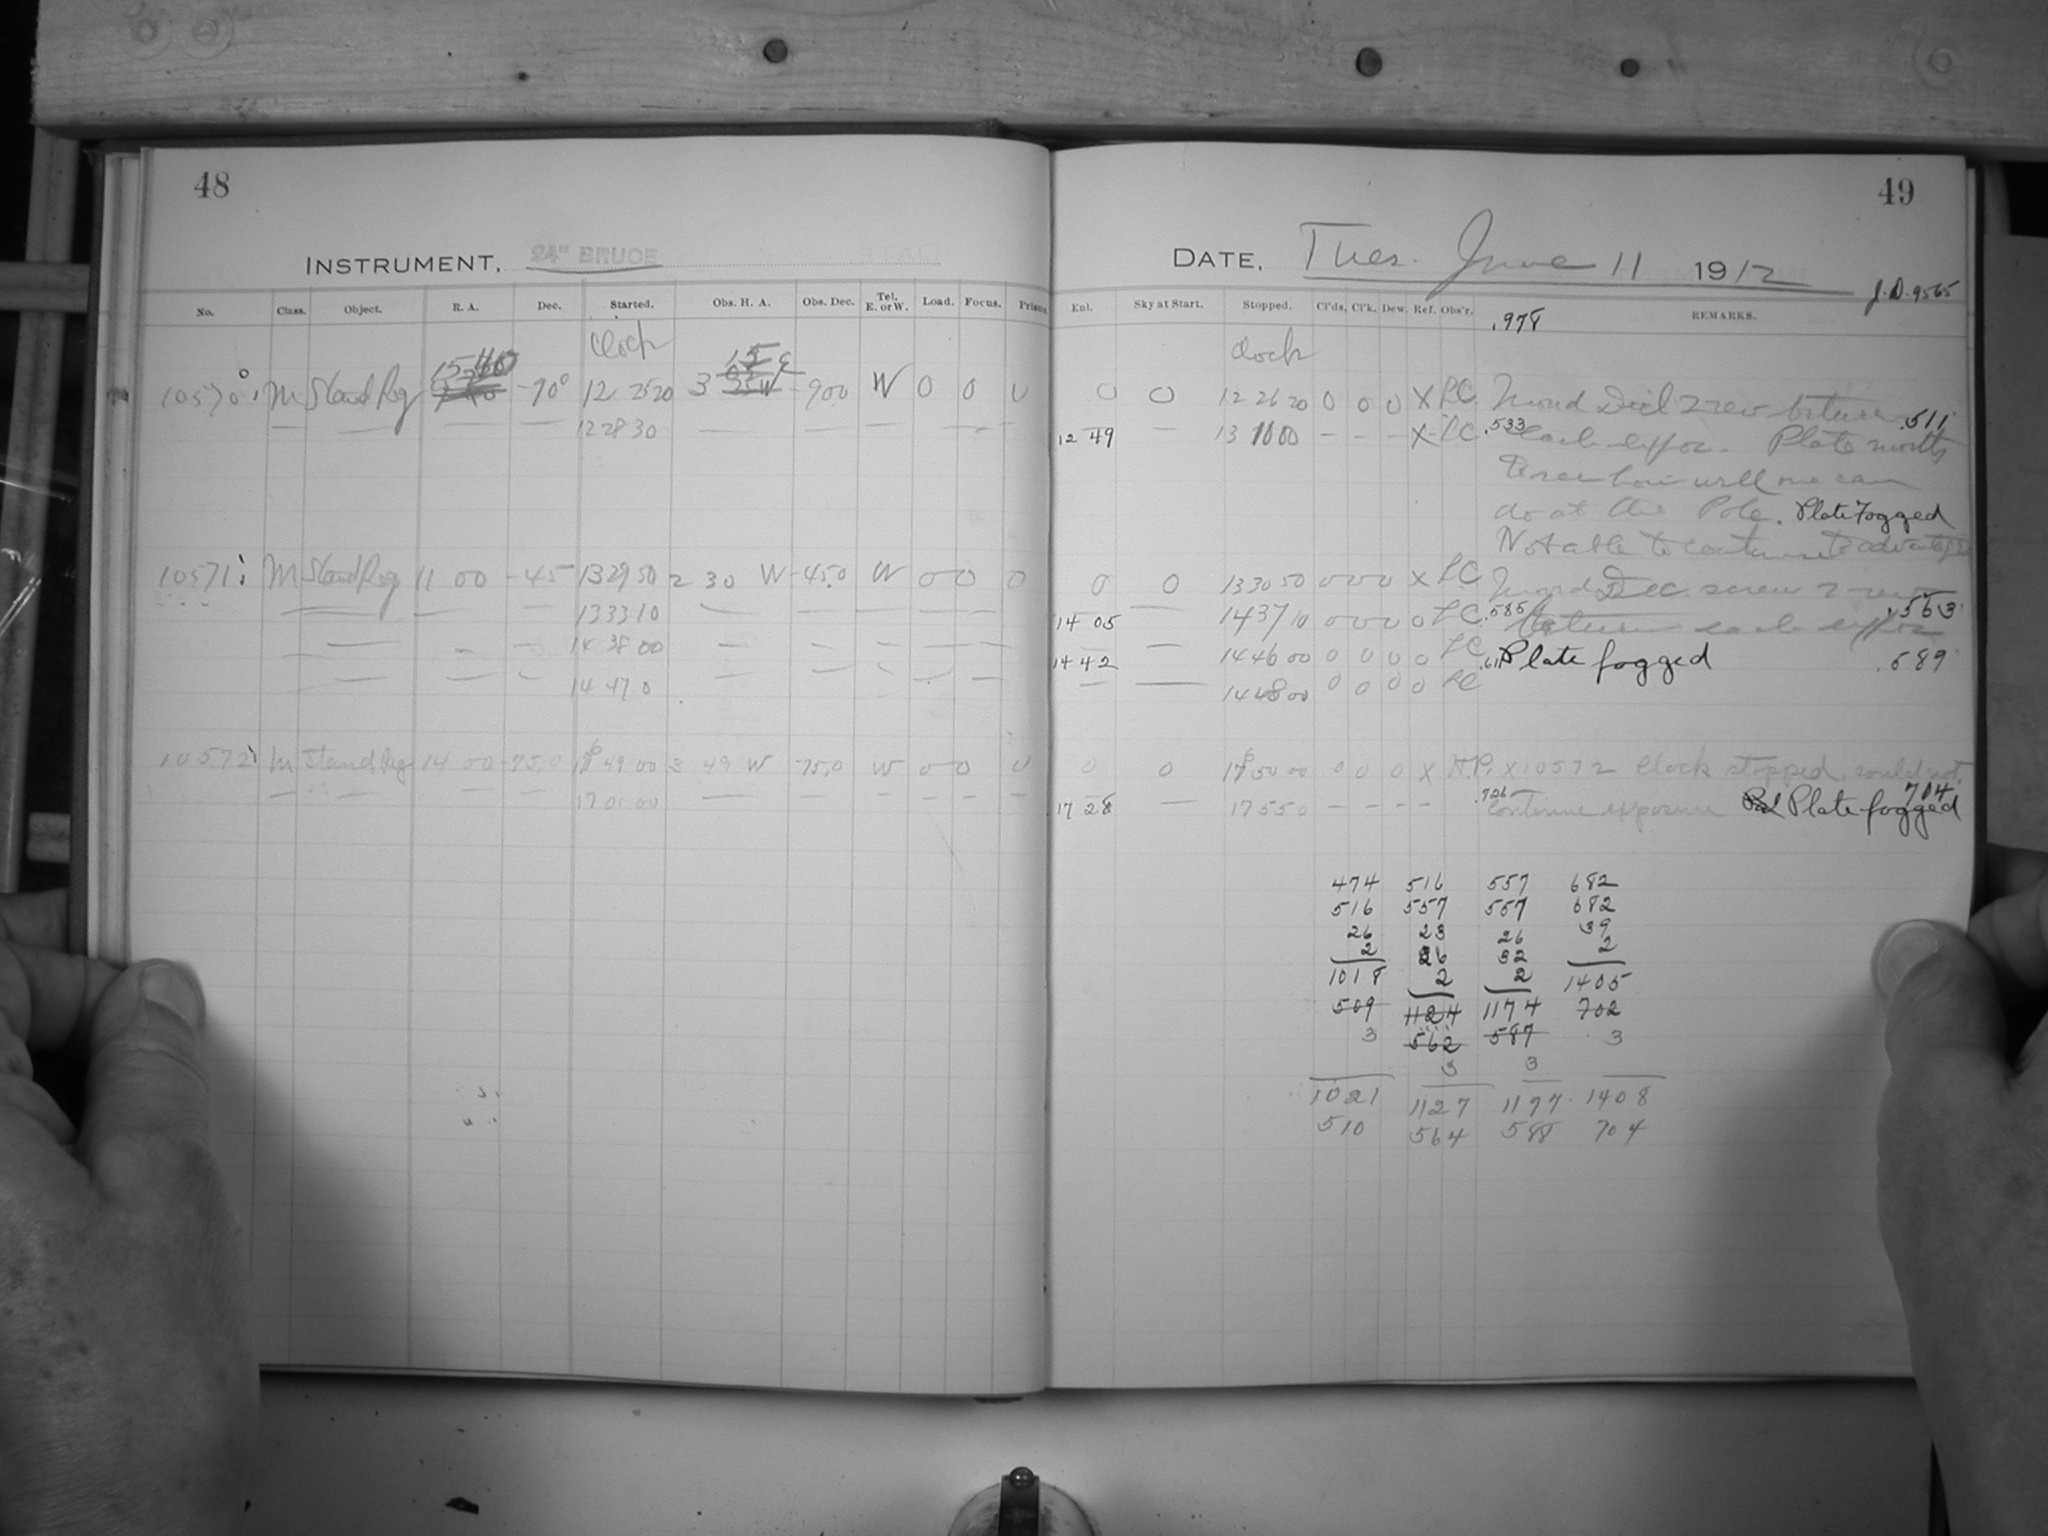 48
INSTRUMENT, 24" BRUCE
No. Class. Object. R. A. Dec. Started. Obs. H. A. Obs. Dec. Tel. E. or W. Load. Focus. Prism
Clock
10570 M Stand Reg -90° 12 25 20 3 -900 W 0 0 0
— — — — 12 28 30 — — — — —
10571 M Stand Reg 11 00 -45 13 29 50 2 30 W -45.0 W 0 0 0
— — — 13 33 10 — — — — —
— — — 14 38 00 — — — — —
— — — 14 47 0 — — — — —
10572 M Stand Reg 14 00 -75.0 49 00 3 49 W -75.0 W 0 0 0
— — — — 17 01 00 — — — — — —
49
DATE, Tues. June 11 1912
J.D. 9565
Enl. Sky at Start. Stopped. Cl'ds. Cl'k. Dew. Ref. Obs'r. REMARKS.
.978
Clock
0 0 12 26 20 0 0 0 X LC
.511
12 49 — 13 10 00 - - - X LC .533 each expos. Plate
how well we can
do at the Pole. Plate Fogged
Not able to
0 0 13 30 50 0 0 0 X LC Dec. screw 2 rev
14 05 — 14 37 10 0 0 0 0 LC .585 between each expos .563
14 42 — 14 46 00 0 0 0 0 LC Plate fogged .589
— — 14 48 00 0 0 0 0 LC
0 0 50 00 0 0 0 X H.P. X 10572 Clock stopped, could not
17 28 — 17 55 0 - - - - .726 continue exposure Plate fogged .704
474 516 557 682
516 557 557 682
26 23 26 39
2 26 32 2
1018 2 2 1405
509 1124 1174 702
3 562 587 3
3 3
1021 1127 1177 1408
510 564 588 704